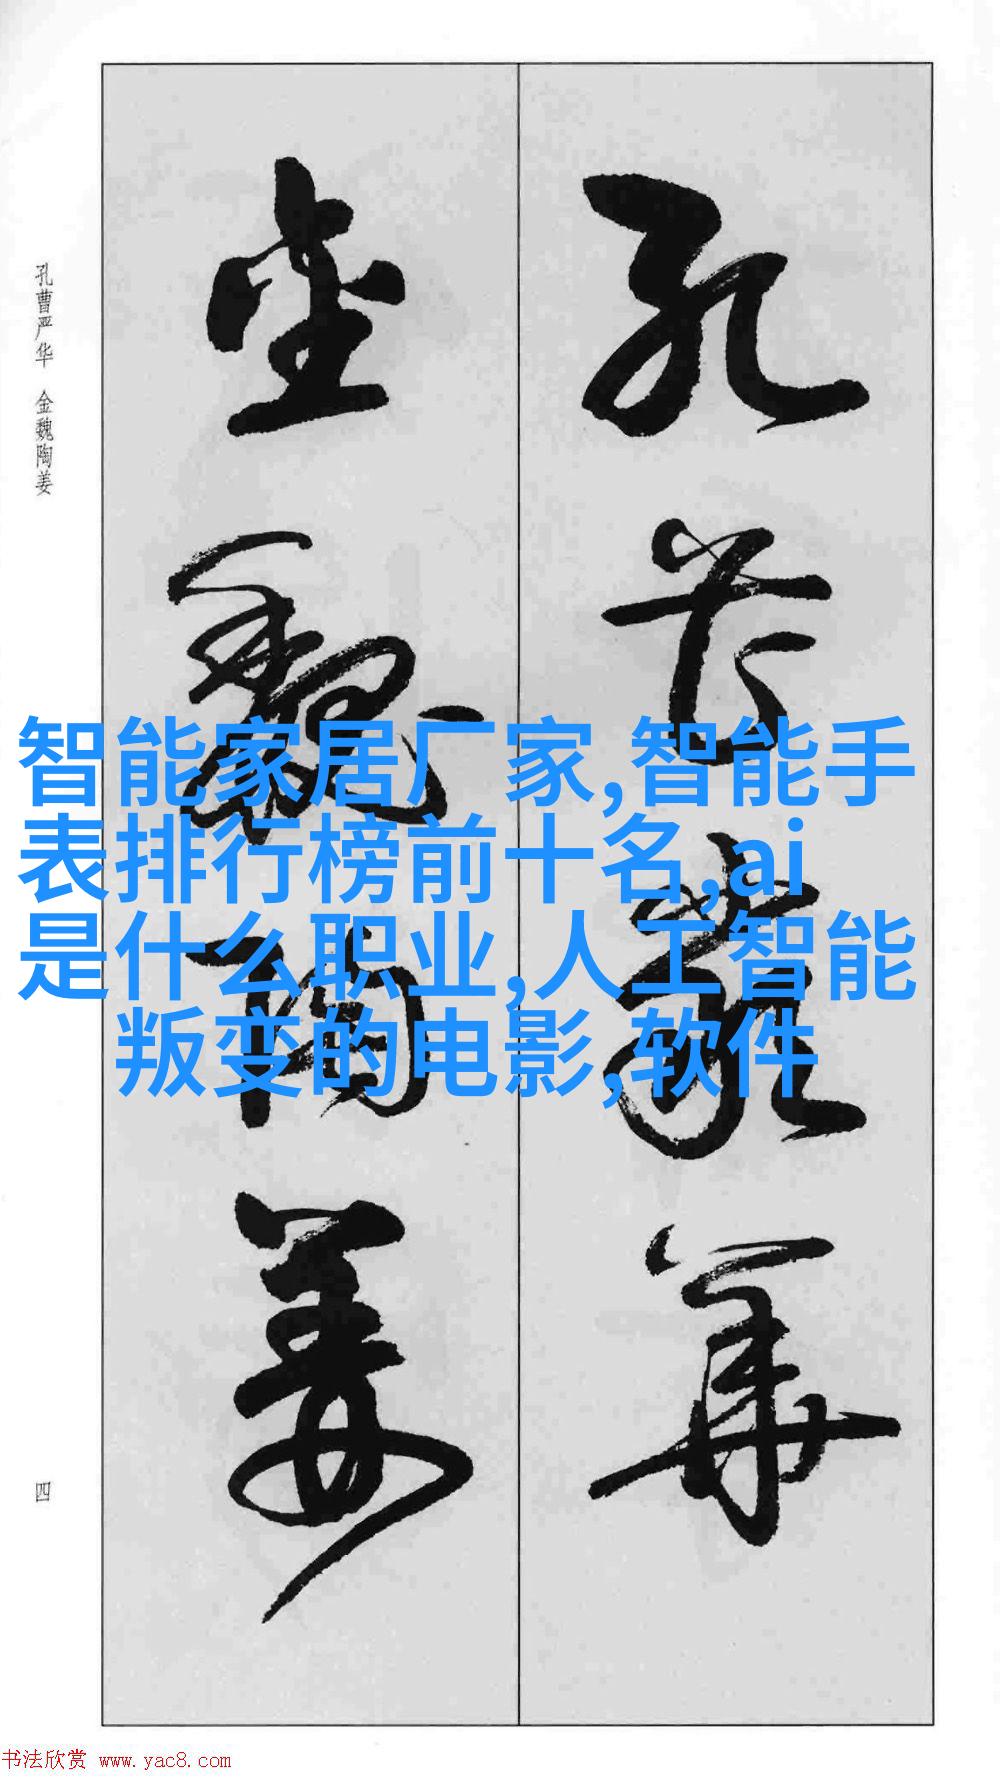 孔曹严华
金魏陶姜
孔曹严华 金魏陶姜
智能家居厂家,智能手
表排行榜前十名,ai
是什么职业,人工智能
叛变的电影,软件
四
书法欣赏 www.yac8.com